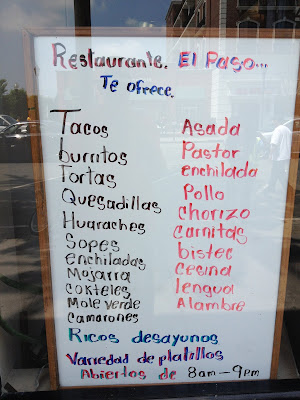 Restaurante. El Paso...
Te ofrece.
Tacos
burritos
Tortas
Quesadillas
Huaraches
Sopes
enchiladas
Mojarra
cokteles
Mole verde
camarones
Asada
Pastor
enchilada
Pollo
chorizo
carnitas
bistec
Cecina
lengua
Alambre
Ricos desayunos
Variedad de platillos
Abiertos de 8am-9pm